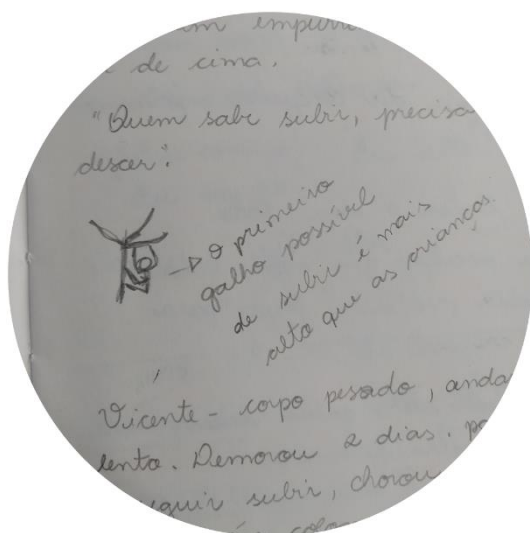 um empurr
de cima.
"Quem sabe subir, precisa
descer".
→ o primeiro
galho possível
de subir é mais
alto que as crianças.
Vicente - corpo pesado, anda
lento. Demorou 2 dias. pa
guir subir, chorou